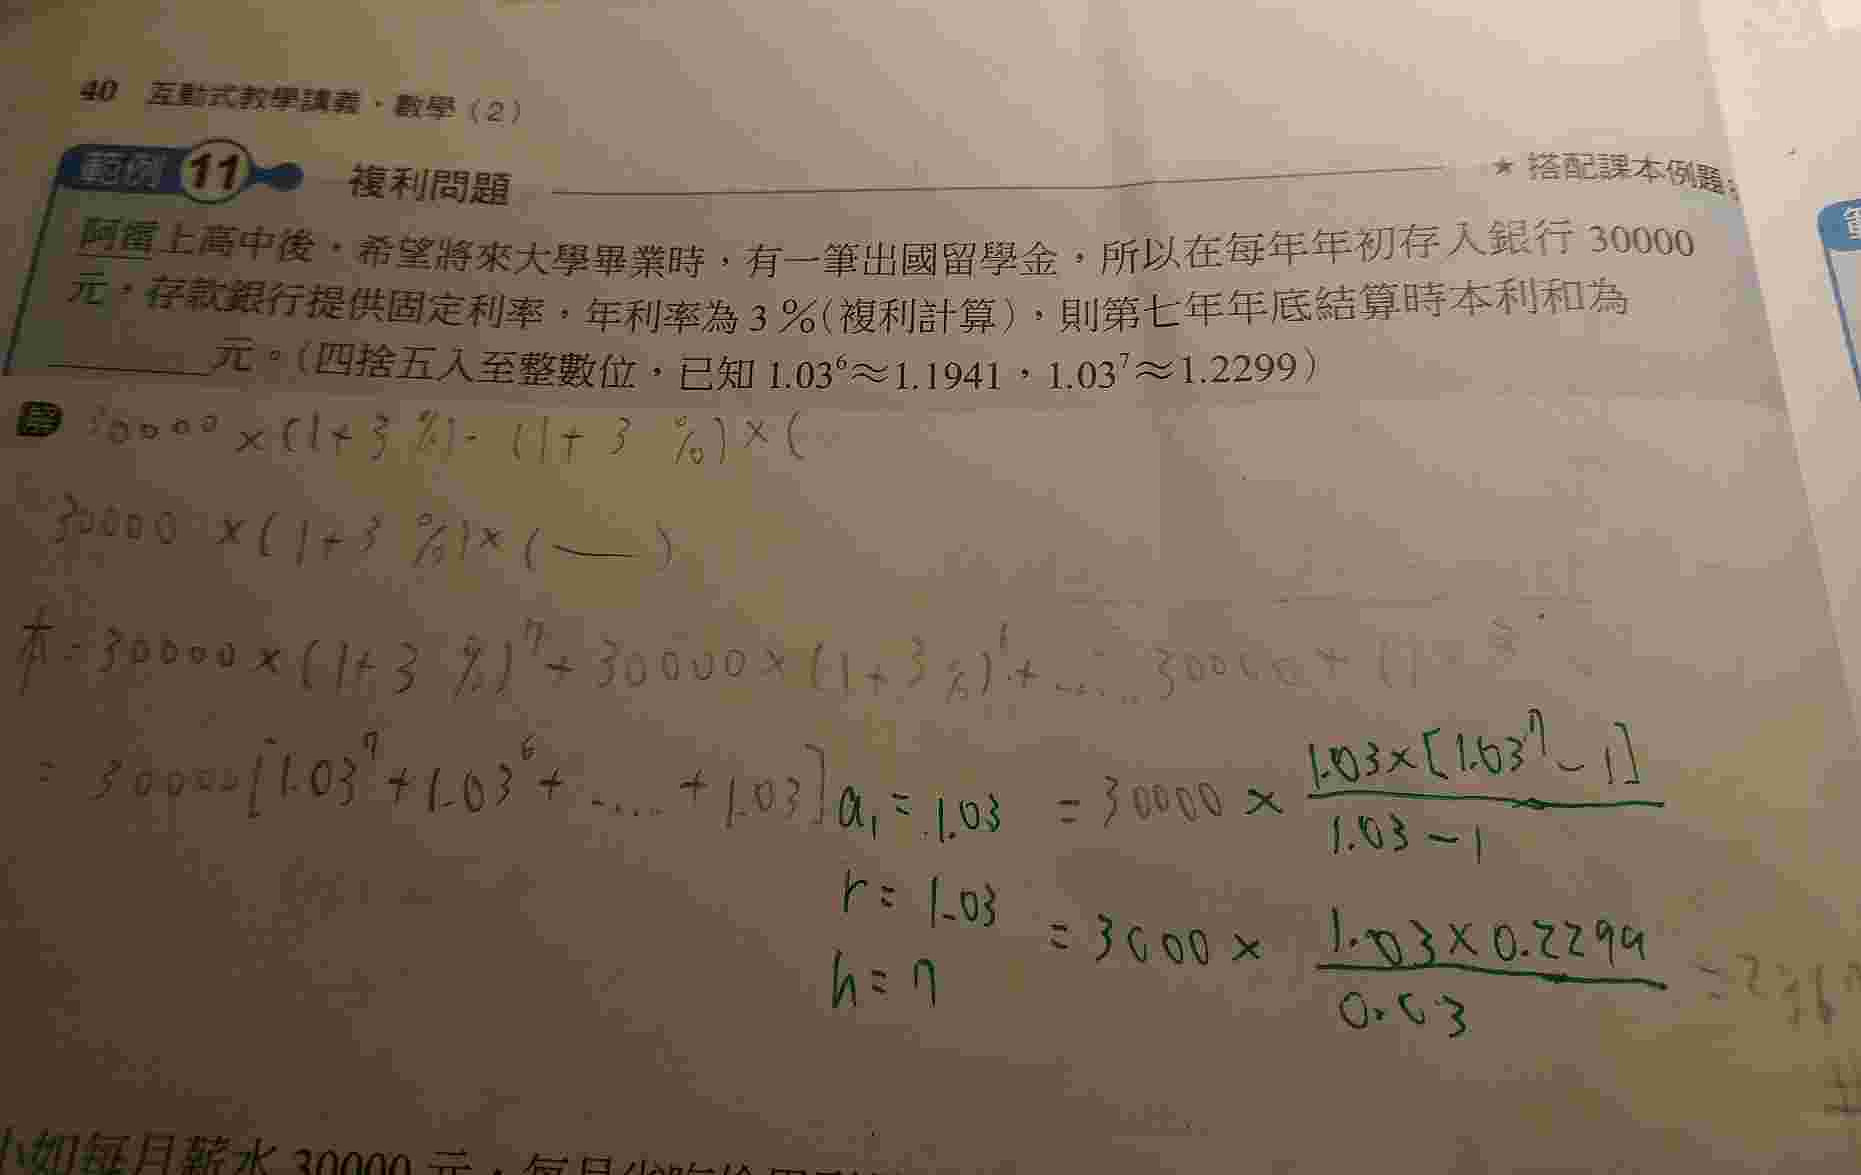 40 互動式教學講義・數學(2)
範例 11 複利問題 ★ 搭配課本例題
阿雷上高中後,希望將來大學畢業時,有一筆出國留學金,所以在每年年初存入銀行 30000
元,存款銀行提供固定利率,年利率為 3 %(複利計算),則第七年年底結算時本利和為
________元。(四捨五入至整數位,已知 1.03⁶≈1.1941,1.03⁷≈1.2299)
30000×(1+3%)·(1+3%)×(
30000×(1+3%)×( — )
本=30000×(1+3%)⁷+30000×(1+3%)⁶+......30000×(1+3
=30000[1.03⁷+1.03⁶+.....+1.03] a₁=1.03 =30000× 1.03×[1.03⁷-1] / 1.03-1
r=1.03
n=7 =3000× 1.03×0.2299 / 0.03 =236
小如每月薪水 30000 元,每月